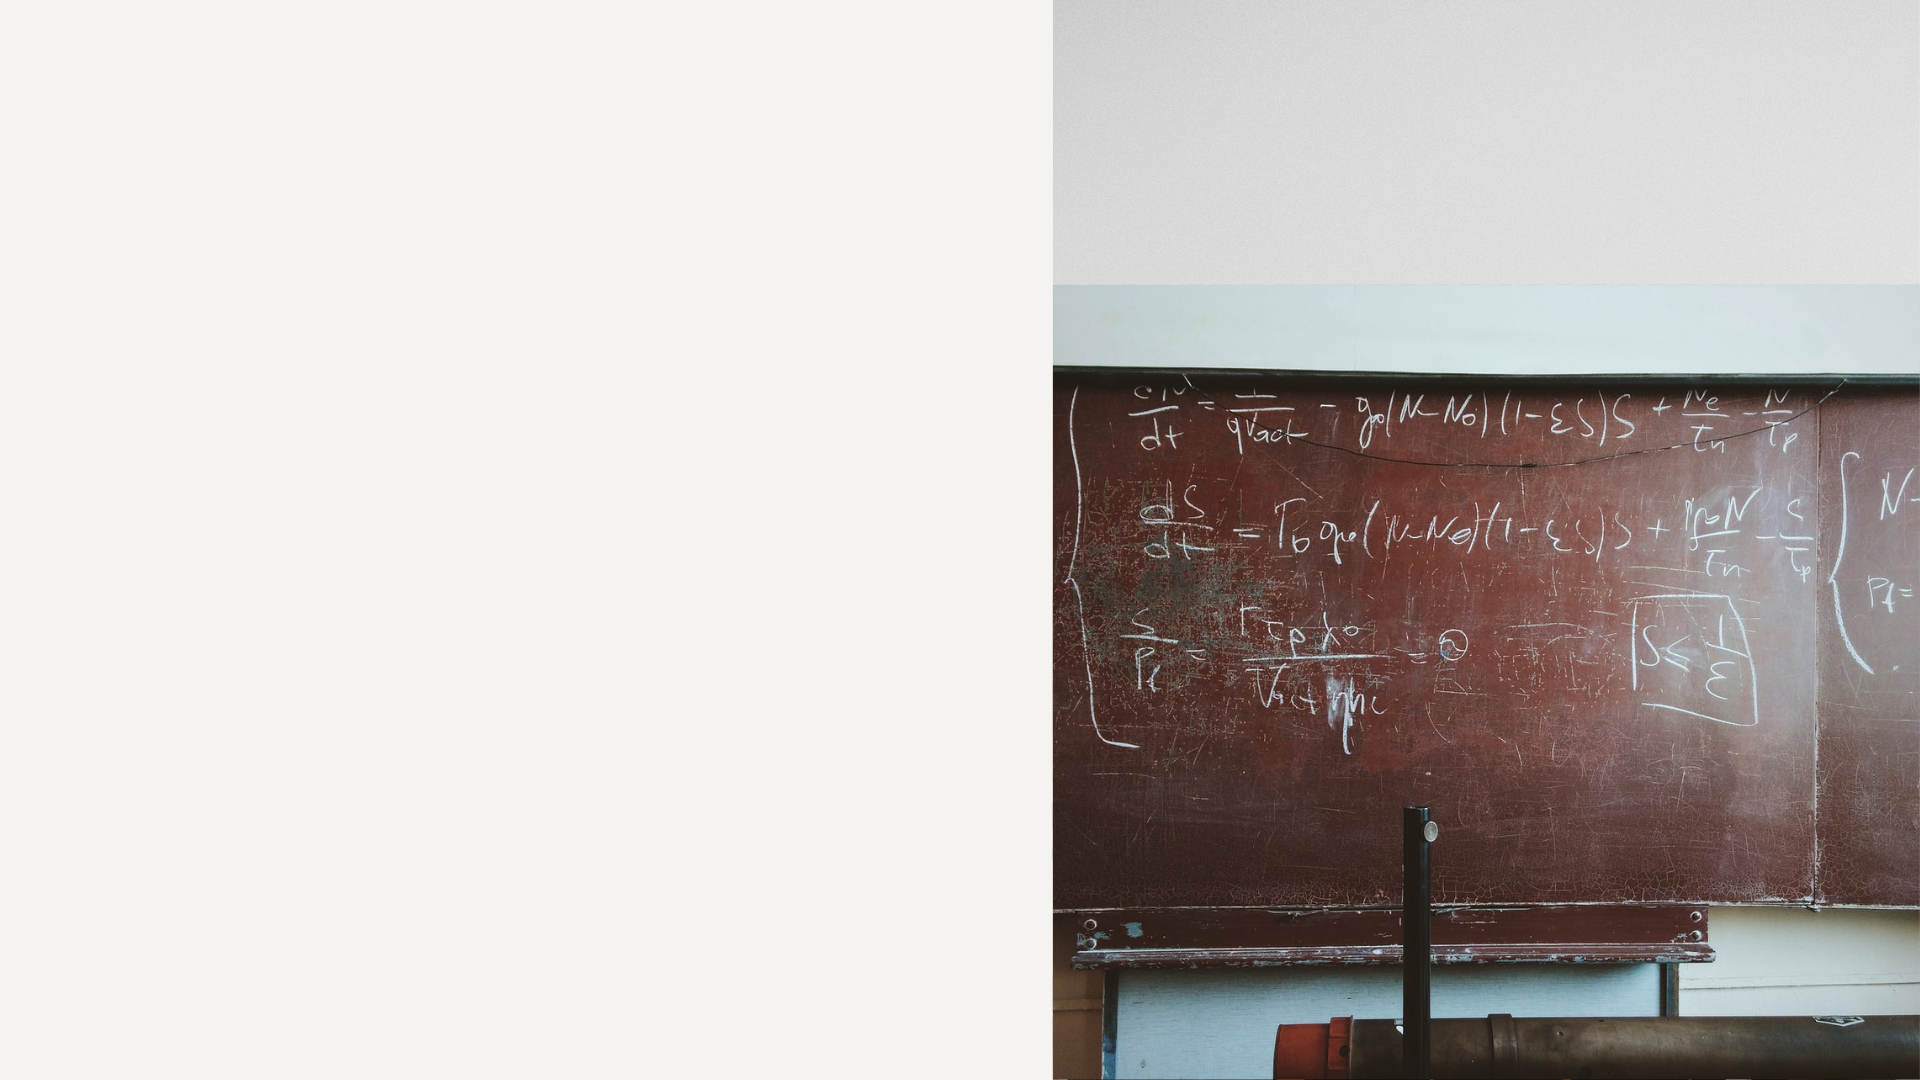 dN/dt = 1/qVact - g₀(N-N₀)(1-εS)S + Ne/τn - N/τp
dS/dt = Γ₀g₀(N-N₀)(1-εS)S + N/τn - S/τp
S/Pf = Γτpλ₀/Vactηhc =
S ≤ 1/ε
N-
Pf =